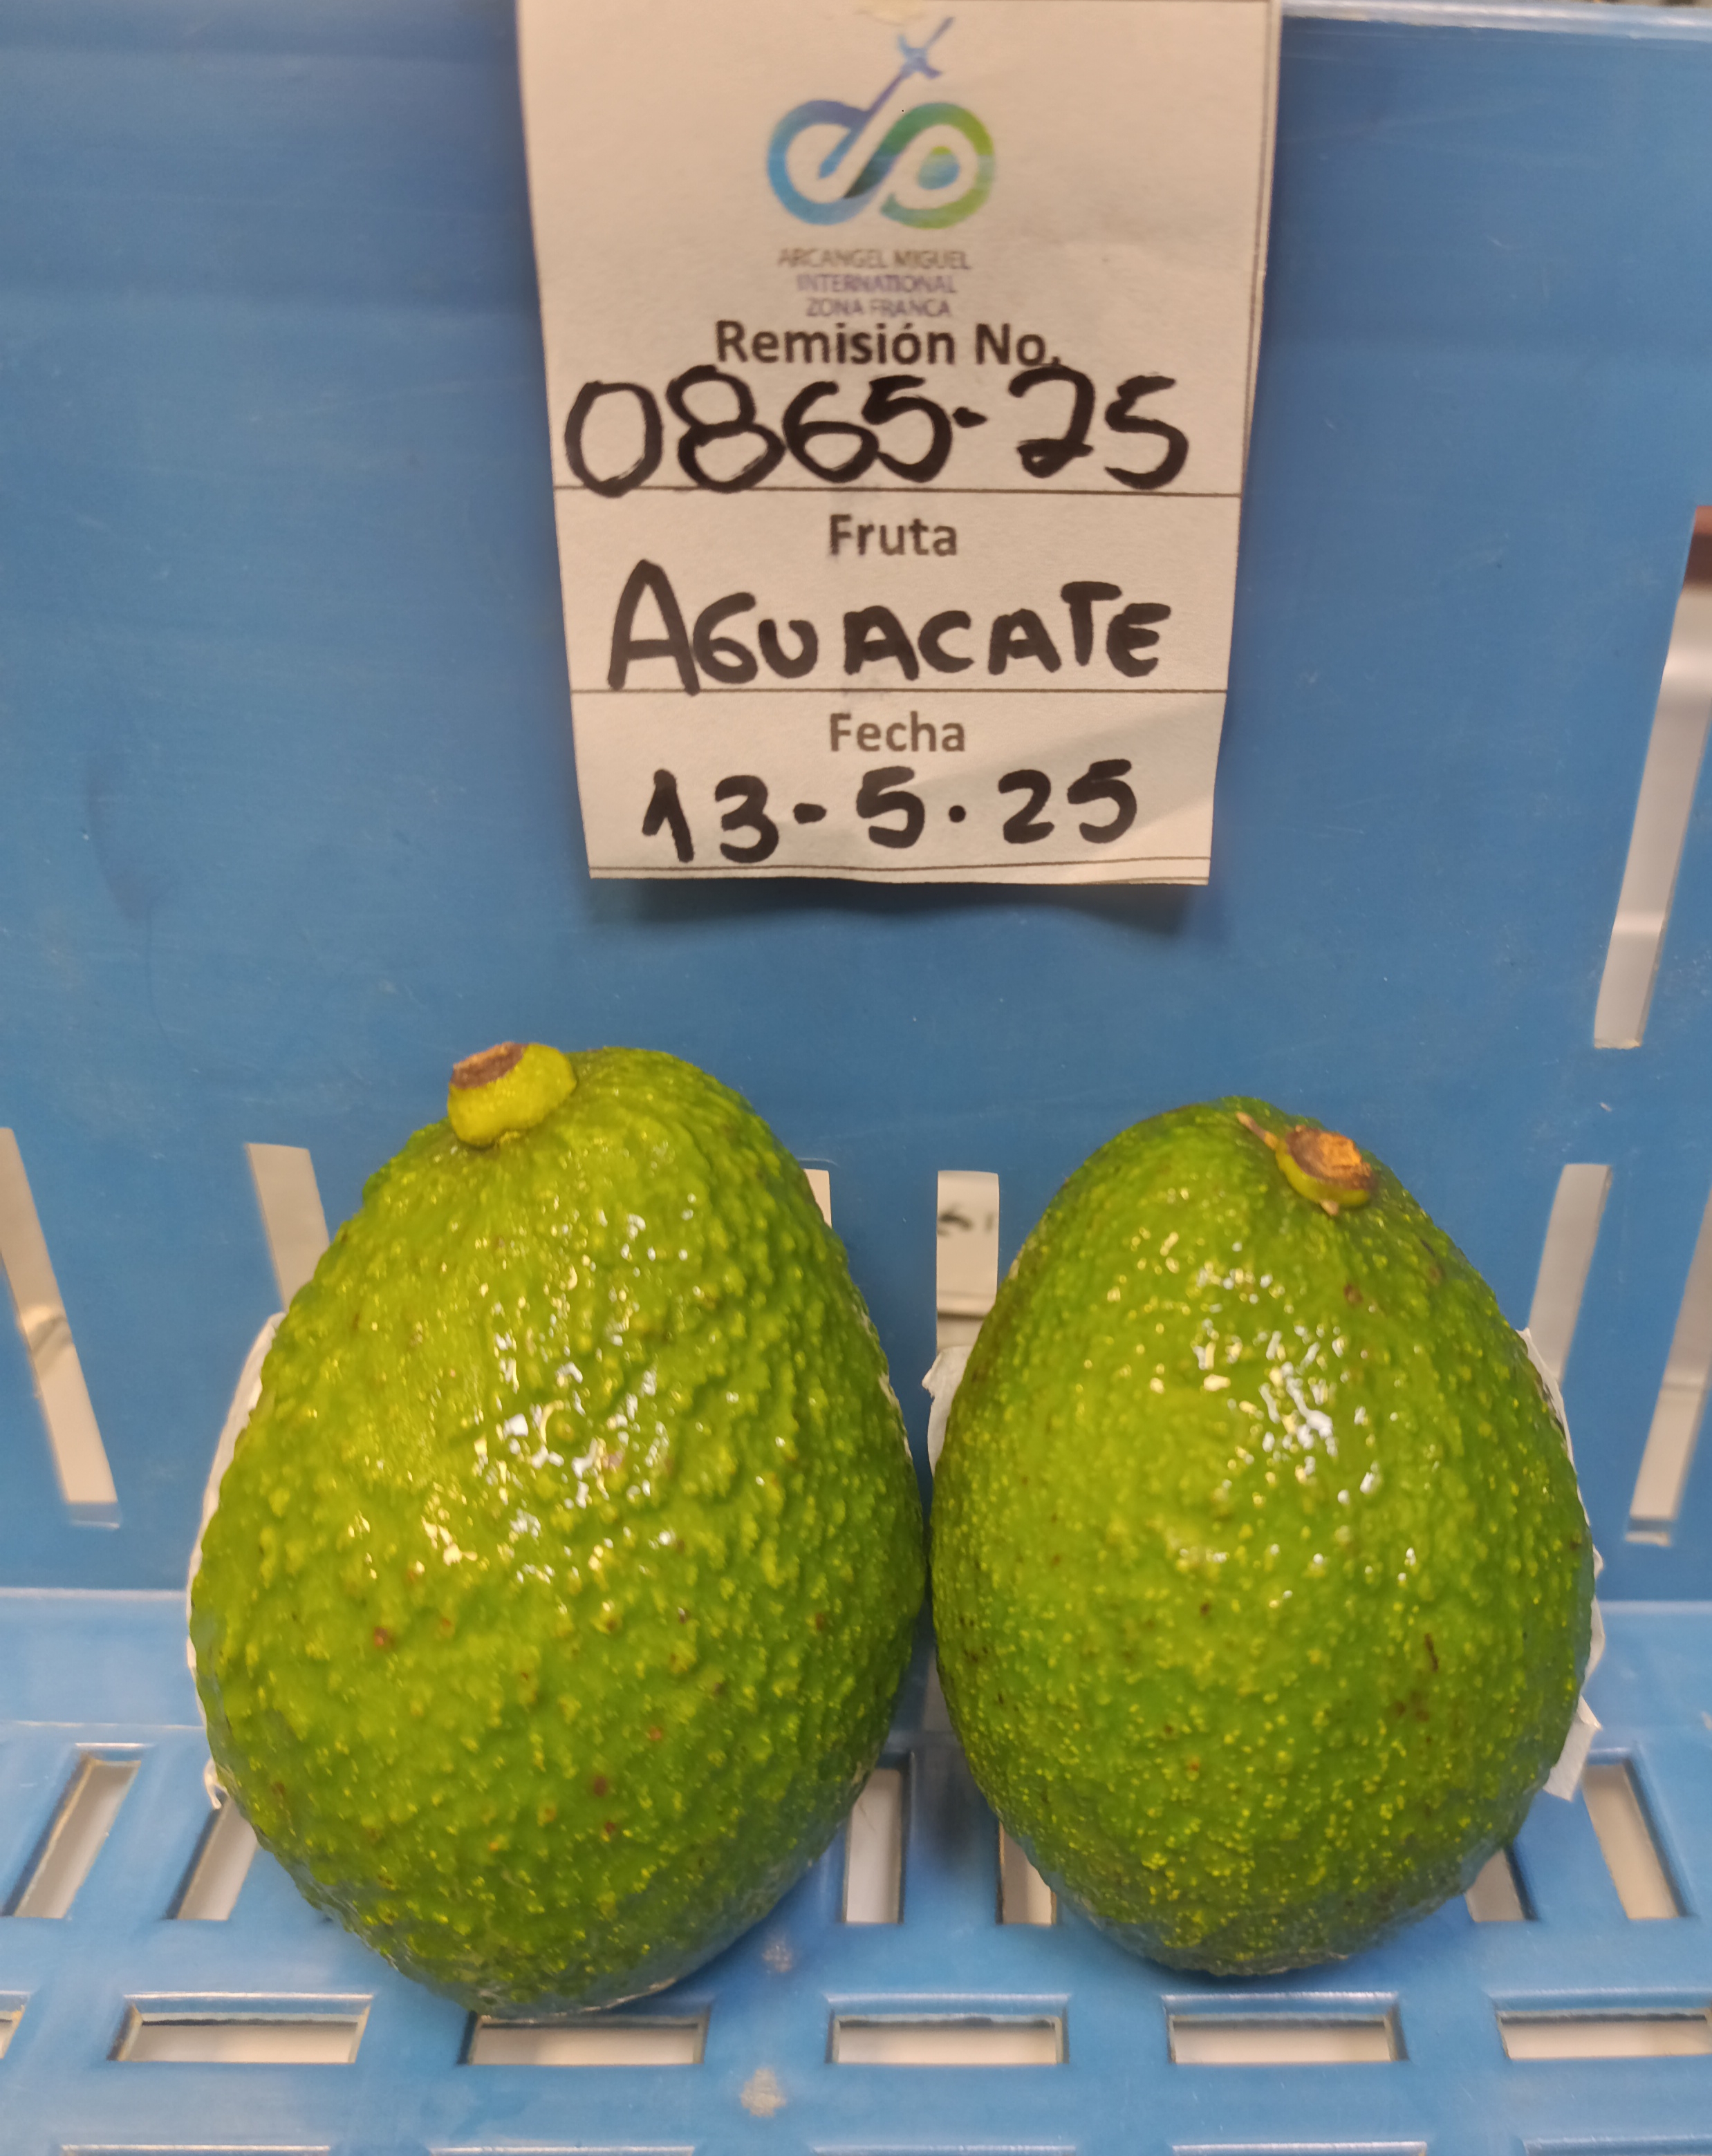 ARCANGEL MIGUEL
INTERNATIONAL
ZONA FRANCA
Remisión No.
0865-25
Fruta
AGUACATE
Fecha
13-5.25